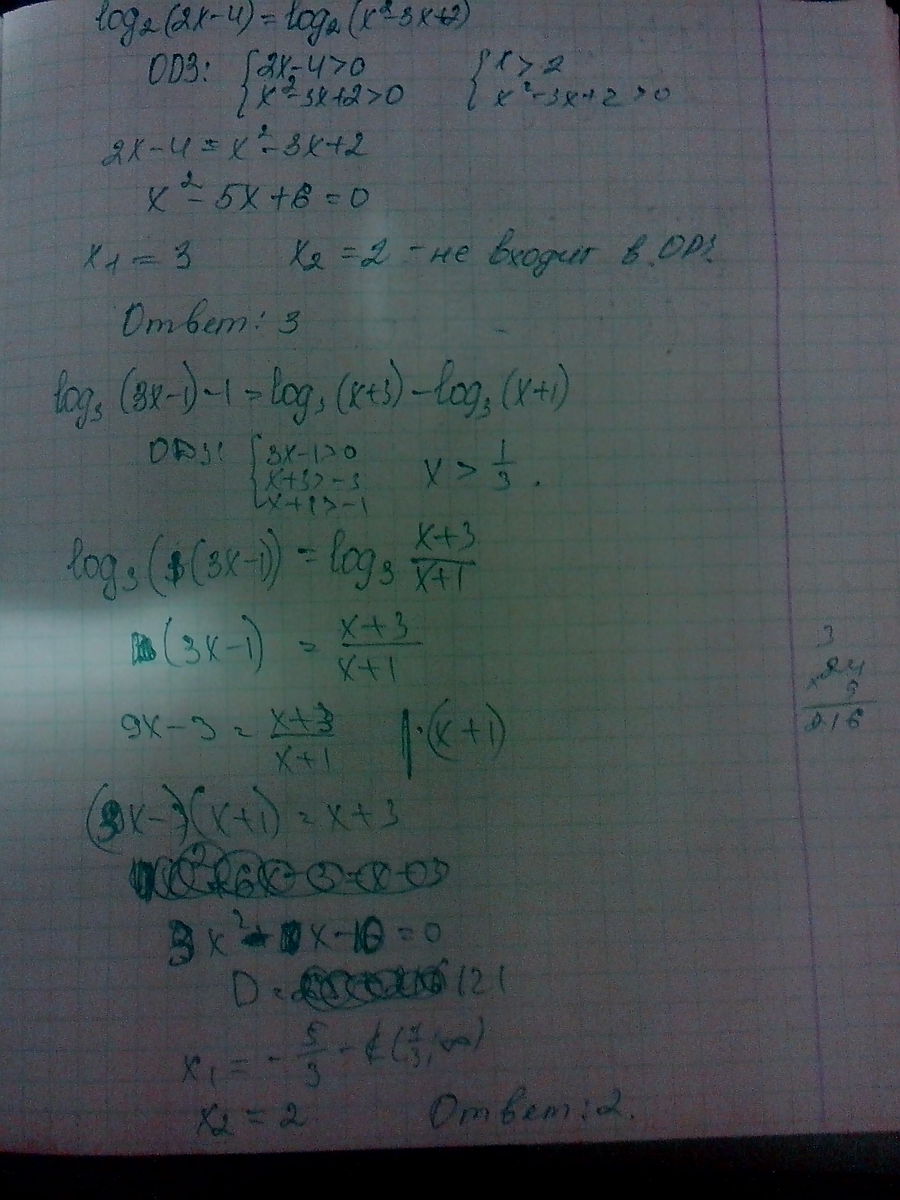 log₂(2x-4) = log₂(x²-3x+2)
ОДЗ: { 2x-4>0 { x>2
x²-3x+2>0 x²-3x+2>0
2x-4 = x²-3x+2
x²-5x+6=0
x₁=3 x₂=2 - не входит в ОДЗ
Ответ: 3
log₃(3x-1)-1 = log₃(x+3) - log₃(x+1)
ОДЗ: { 3x-1>0
x+3>-3 x > 1/3.
x+1>-1
log₃((3x-1)) = log₃ (x+3)/(x+1)
(3x-1) = (x+3)/(x+1)
9x-3 = (x+3)/(x+1) | ·(x+1)
(x+1) = x+3
3x² x-10 = 0
D = 121
x₁ = -5/3 - ∉ (1/3; ∞)
x₂ = 2 Ответ: 2.
3
×24
9
216